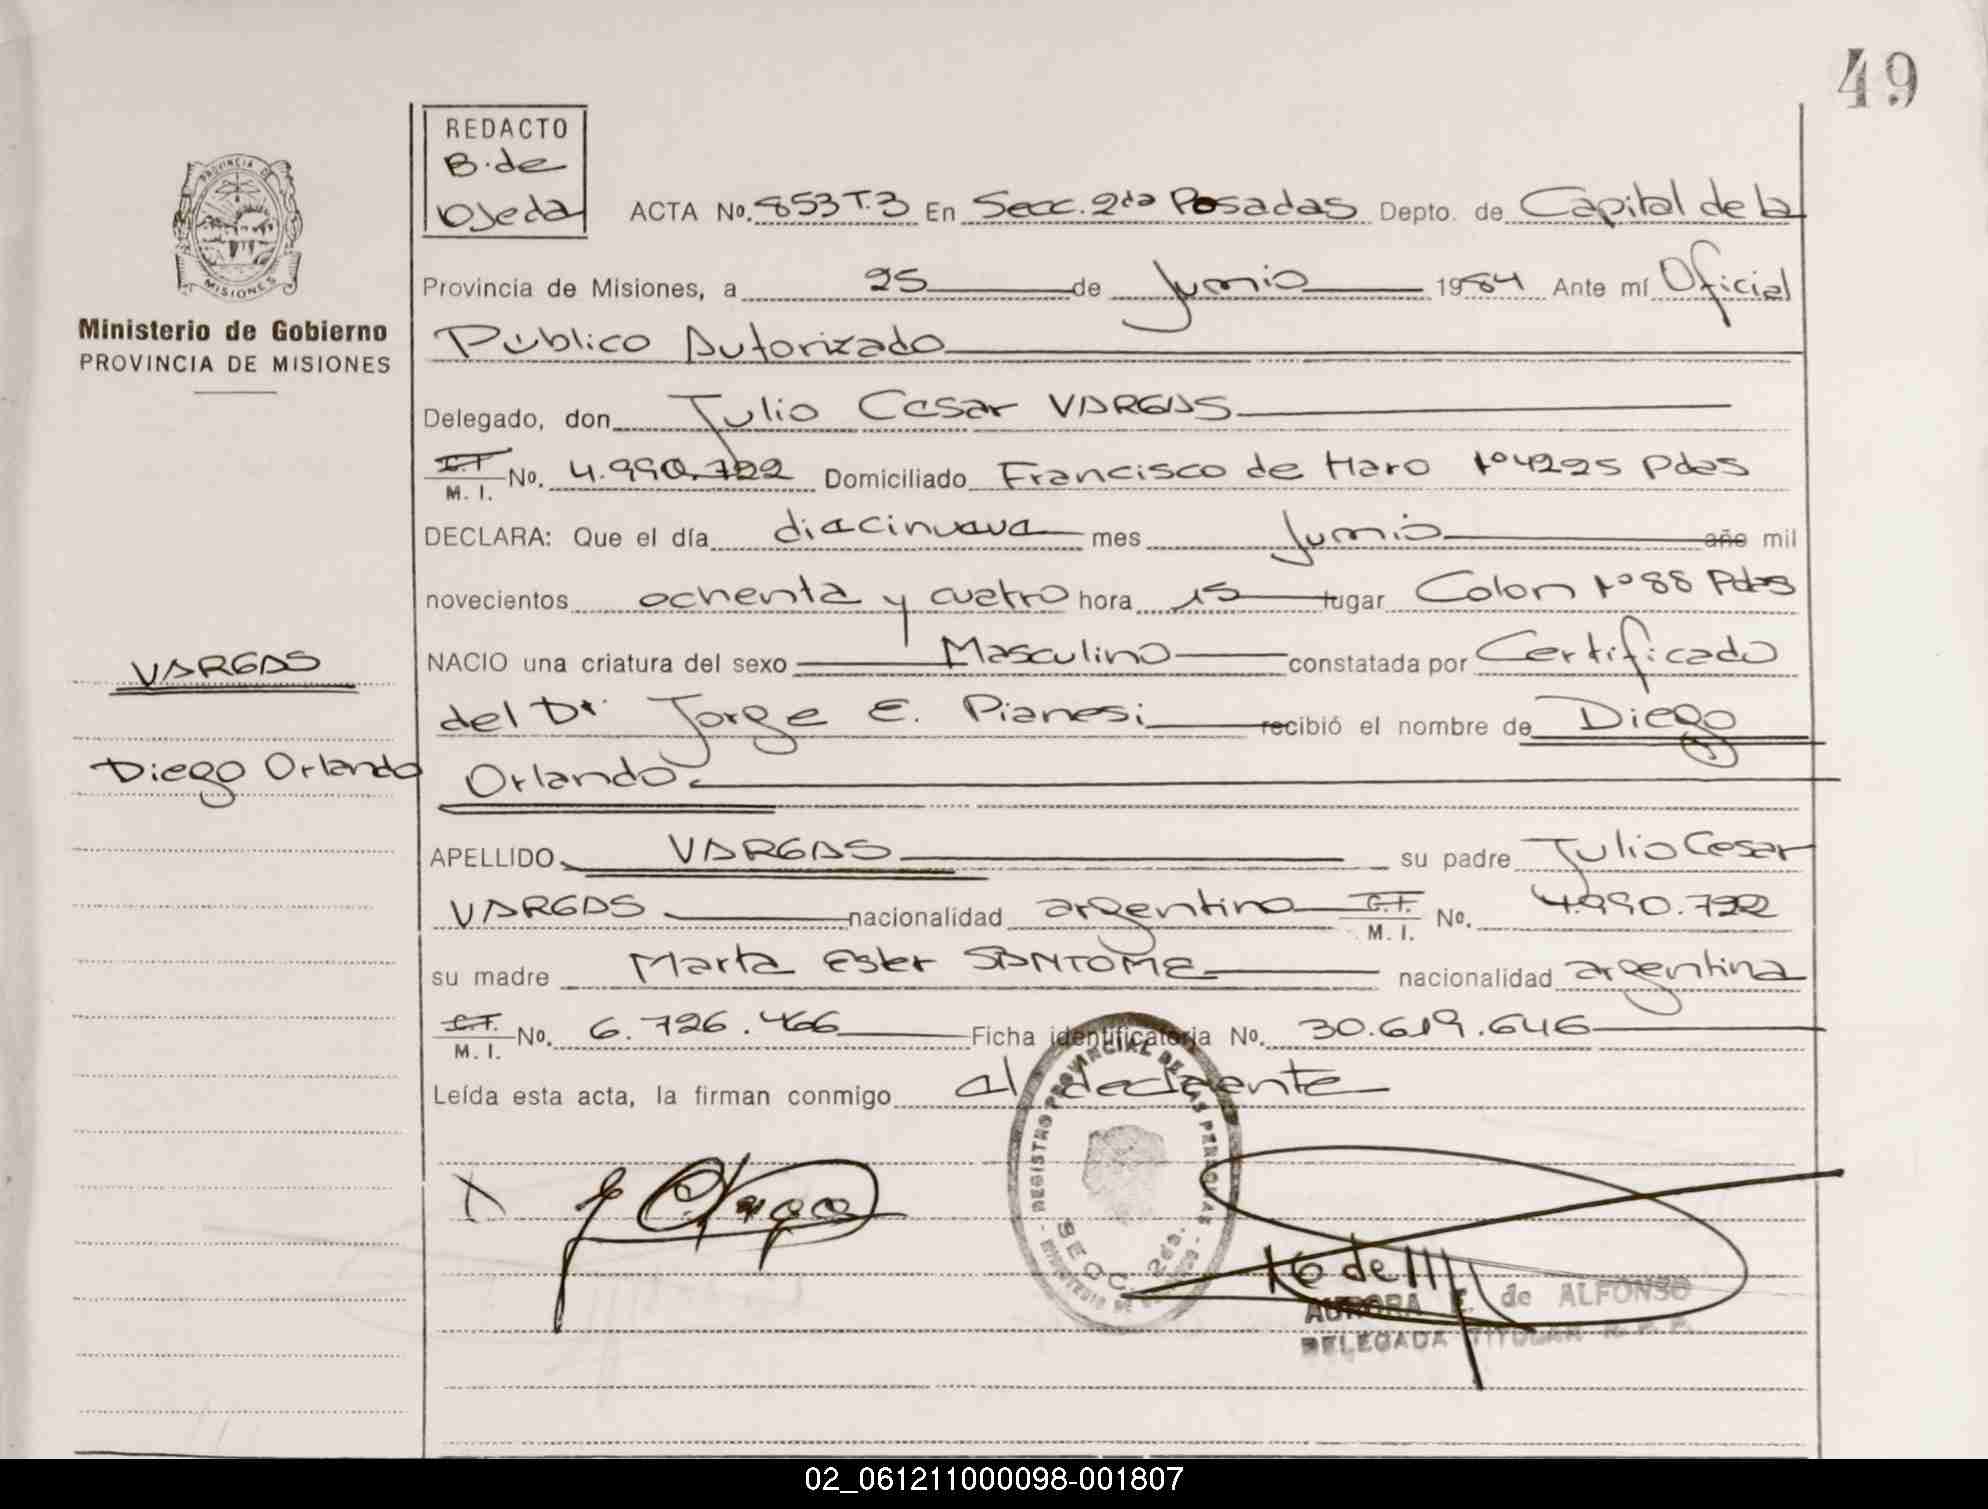 49
REDACTO
B. de
Ojeda
ACTA No. 853 T.3 En Secc. 2da Posadas Depto. de Capital de la
PROVINCIA DE
MISIONES
Ministerio de Gobierno
PROVINCIA DE MISIONES
Provincia de Misiones, a 25 de Junio 1984 Ante mí Oficial
Público Autorizado
Delegado, don Julio Cesar VARGAS
C.I. M. I. No. 4.990.722 Domiciliado Francisco de Haro Nº 4225 Pdas
DECLARA: Que el día diecinueve mes Junio año mil
novecientos ochenta y cuatro hora 15 lugar Colon Nº 88 Pdas
VARGAS
NACIO una criatura del sexo Masculino constatada por Certificado
del Dr. Jorge E. Pianesi recibió el nombre de Diego
Diego Orlando
Orlando.
APELLIDO VARGAS su padre Julio Cesar
VARGAS nacionalidad argentino C.I. M. I. No. 4.990.722
su madre Marta Ester SANTOME nacionalidad argentina
C.I. M. I. No. 6.726.466 Ficha identificatoria No. 30.619.646
Leída esta acta, la firman conmigo el declarante
REGISTRO PROVINCIAL DE LAS PERSONAS
SECC. 2da.
MINISTERIO DE GOBIERNO
AURORA E. de ALFONSO
DELEGADA TITULAR R. P. P.
02_061211000098-001807